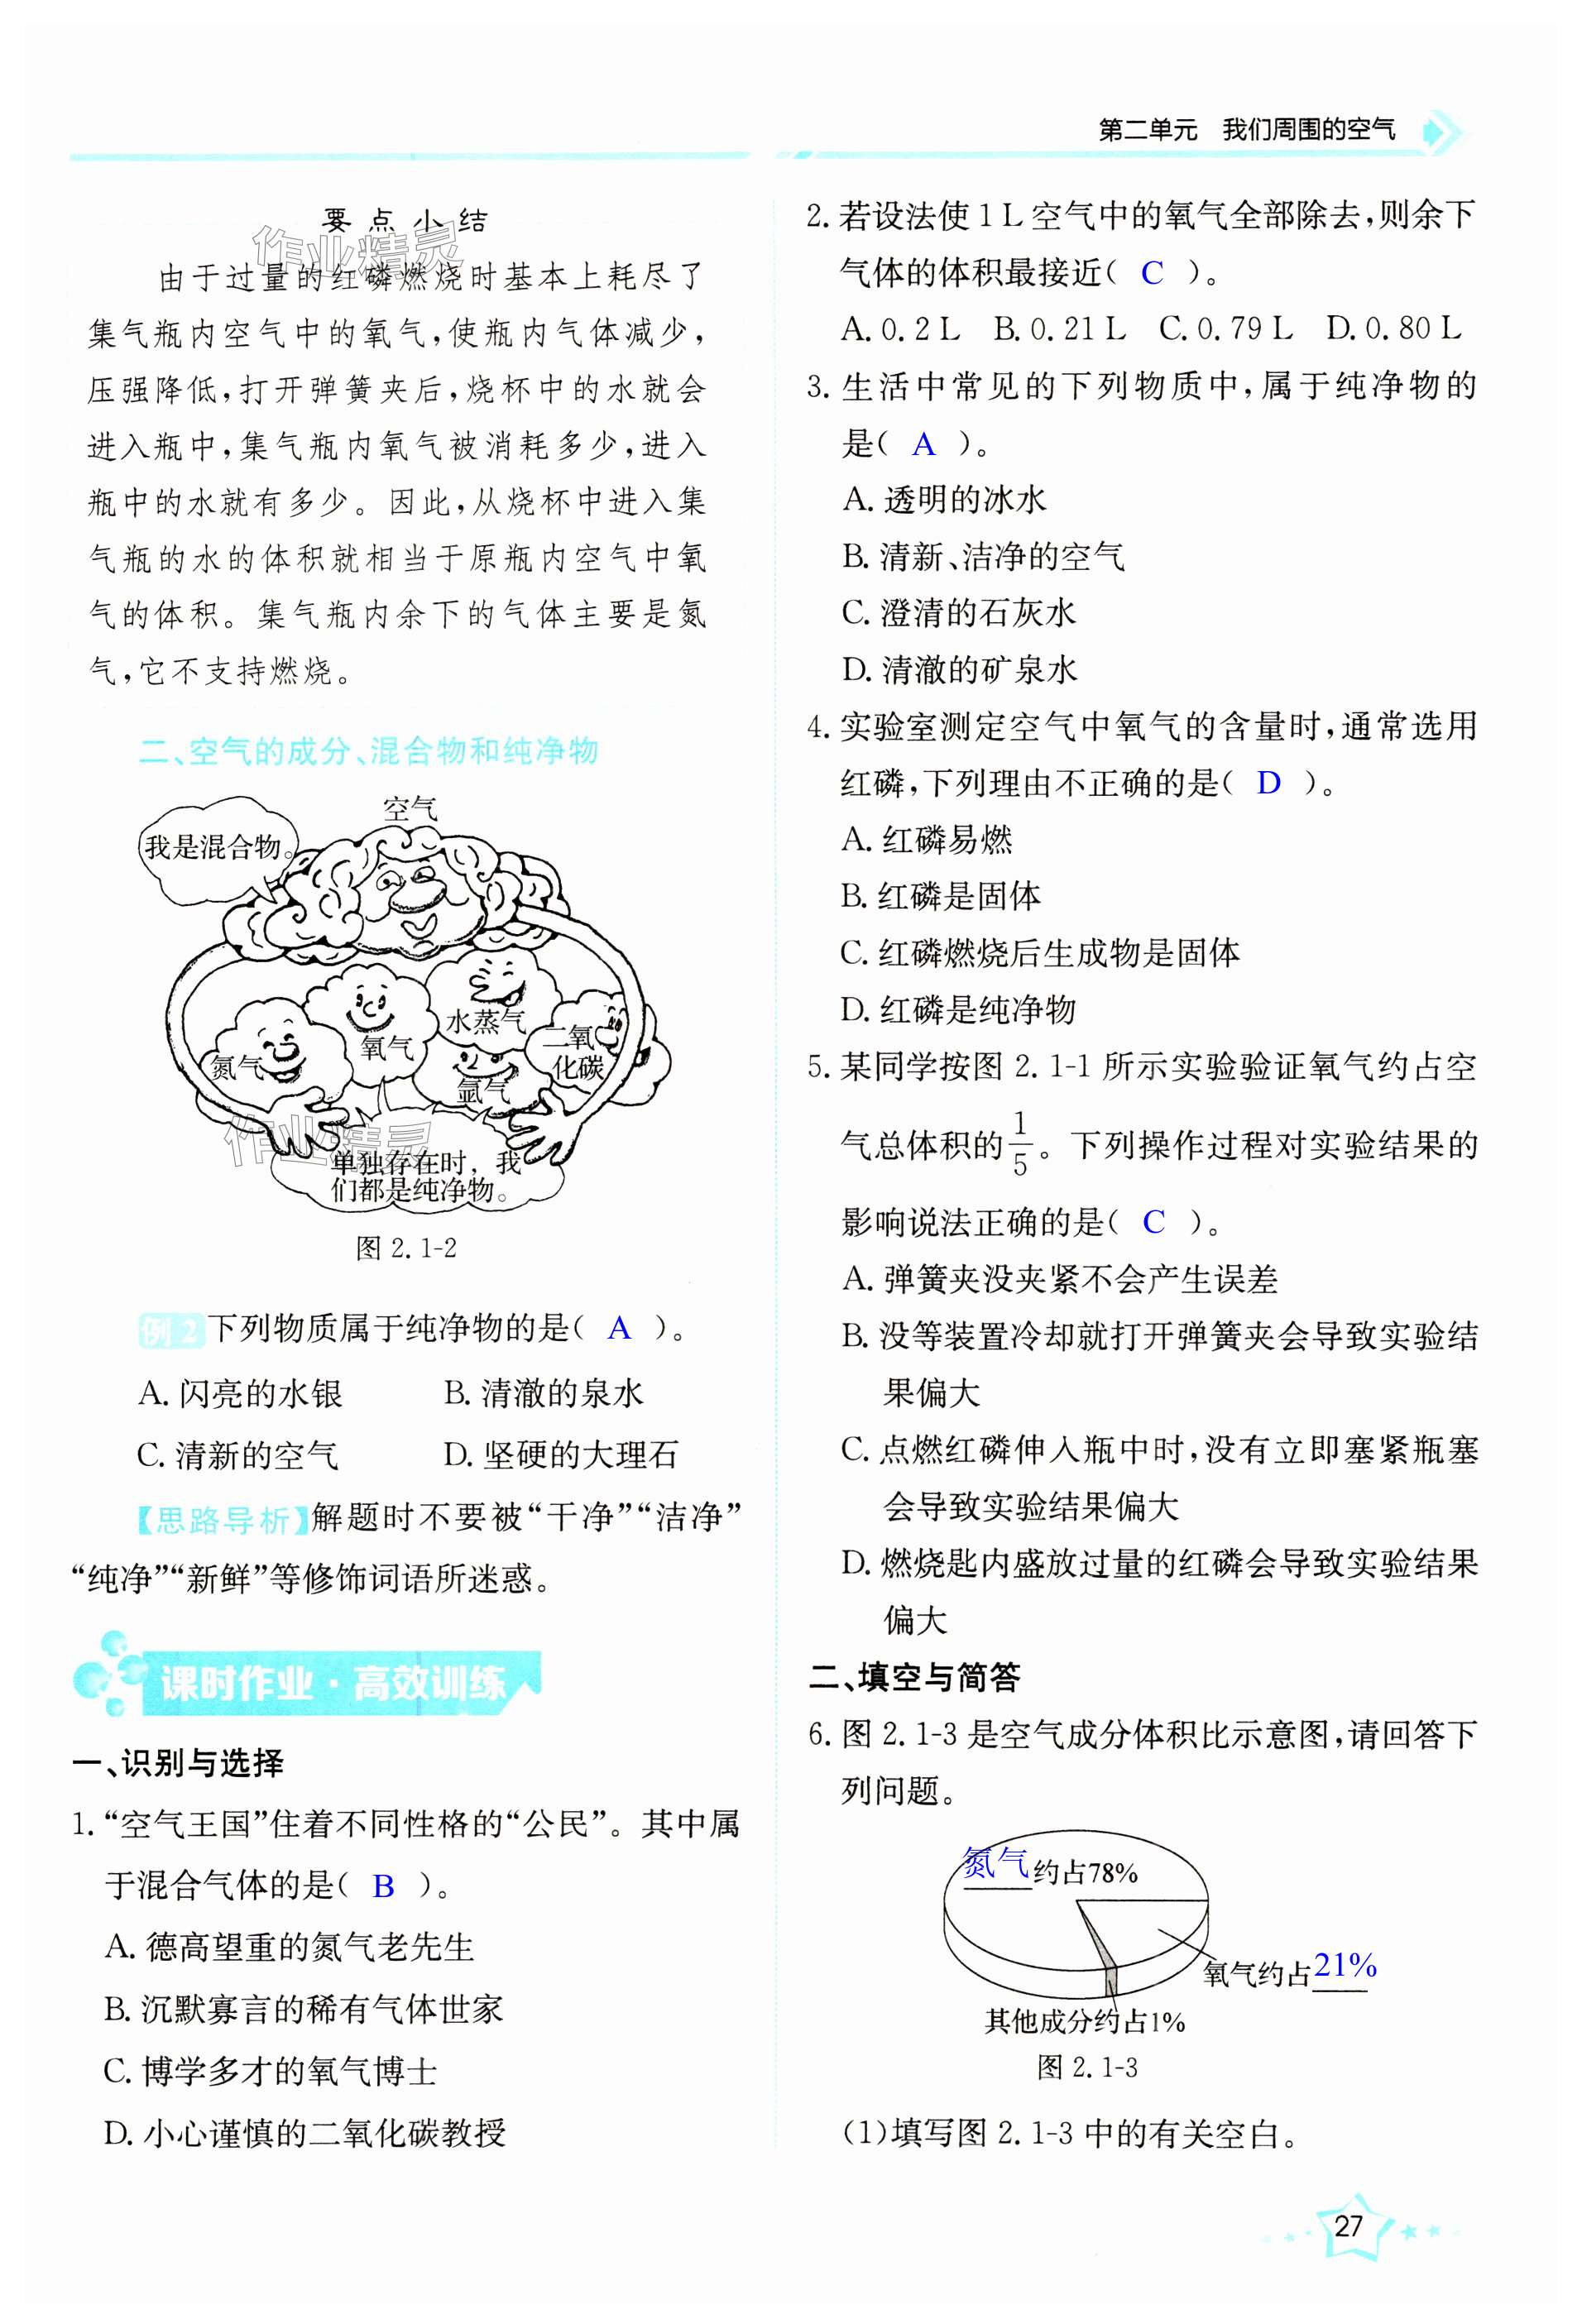 第二单元 我们周围的空气
要点小结
作业精灵
由于过量的红磷燃烧时基本上耗尽了
集气瓶内空气中的氧气,使瓶内气体减少,
压强降低,打开弹簧夹后,烧杯中的水就会
进入瓶中,集气瓶内氧气被消耗多少,进入
瓶中的水就有多少。因此,从烧杯中进入集
气瓶的水的体积就相当于原瓶内空气中氧
气的体积。集气瓶内余下的气体主要是氮
气,它不支持燃烧。
二、空气的成分、混合物和纯净物
空气
我是混合物。
水蒸气
二氧
化碳
氧气
氮气
氩气
作业精灵
单独存在时,我
们都是纯净物。
图 2.1-2
例2 下列物质属于纯净物的是( A )。
A. 闪亮的水银 B. 清澈的泉水
C. 清新的空气 D. 坚硬的大理石
【思路导析】解题时不要被“干净”“洁净”
“纯净”“新鲜”等修饰词语所迷惑。
课时作业·高效训练
一、识别与选择
1. “空气王国”住着不同性格的“公民”。其中属
于混合气体的是( B )。
A. 德高望重的氮气老先生
B. 沉默寡言的稀有气体世家
C. 博学多才的氧气博士
D. 小心谨慎的二氧化碳教授
2. 若设法使 1 L 空气中的氧气全部除去,则余下
气体的体积最接近( C )。
A. 0. 2 L B. 0. 21 L C. 0. 79 L D. 0. 80 L
3. 生活中常见的下列物质中,属于纯净物的
是( A )。
A. 透明的冰水
B. 清新、洁净的空气
C. 澄清的石灰水
D. 清澈的矿泉水
4. 实验室测定空气中氧气的含量时,通常选用
红磷,下列理由不正确的是( D )。
A. 红磷易燃
B. 红磷是固体
C. 红磷燃烧后生成物是固体
D. 红磷是纯净物
5. 某同学按图 2. 1-1 所示实验验证氧气约占空
气总体积的1/5。下列操作过程对实验结果的
影响说法正确的是( C )。
A. 弹簧夹没夹紧不会产生误差
B. 没等装置冷却就打开弹簧夹会导致实验结
果偏大
C. 点燃红磷伸入瓶中时,没有立即塞紧瓶塞
会导致实验结果偏大
D. 燃烧匙内盛放过量的红磷会导致实验结果
偏大
二、填空与简答
6. 图 2. 1-3 是空气成分体积比示意图,请回答下
列问题。
氮气约占78%
氧气约占21%
其他成分约占1%
图 2. 1-3
(1)填写图 2. 1-3 中的有关空白。
27